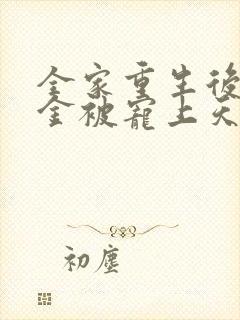 全家重生後
金被寵上天
初塵